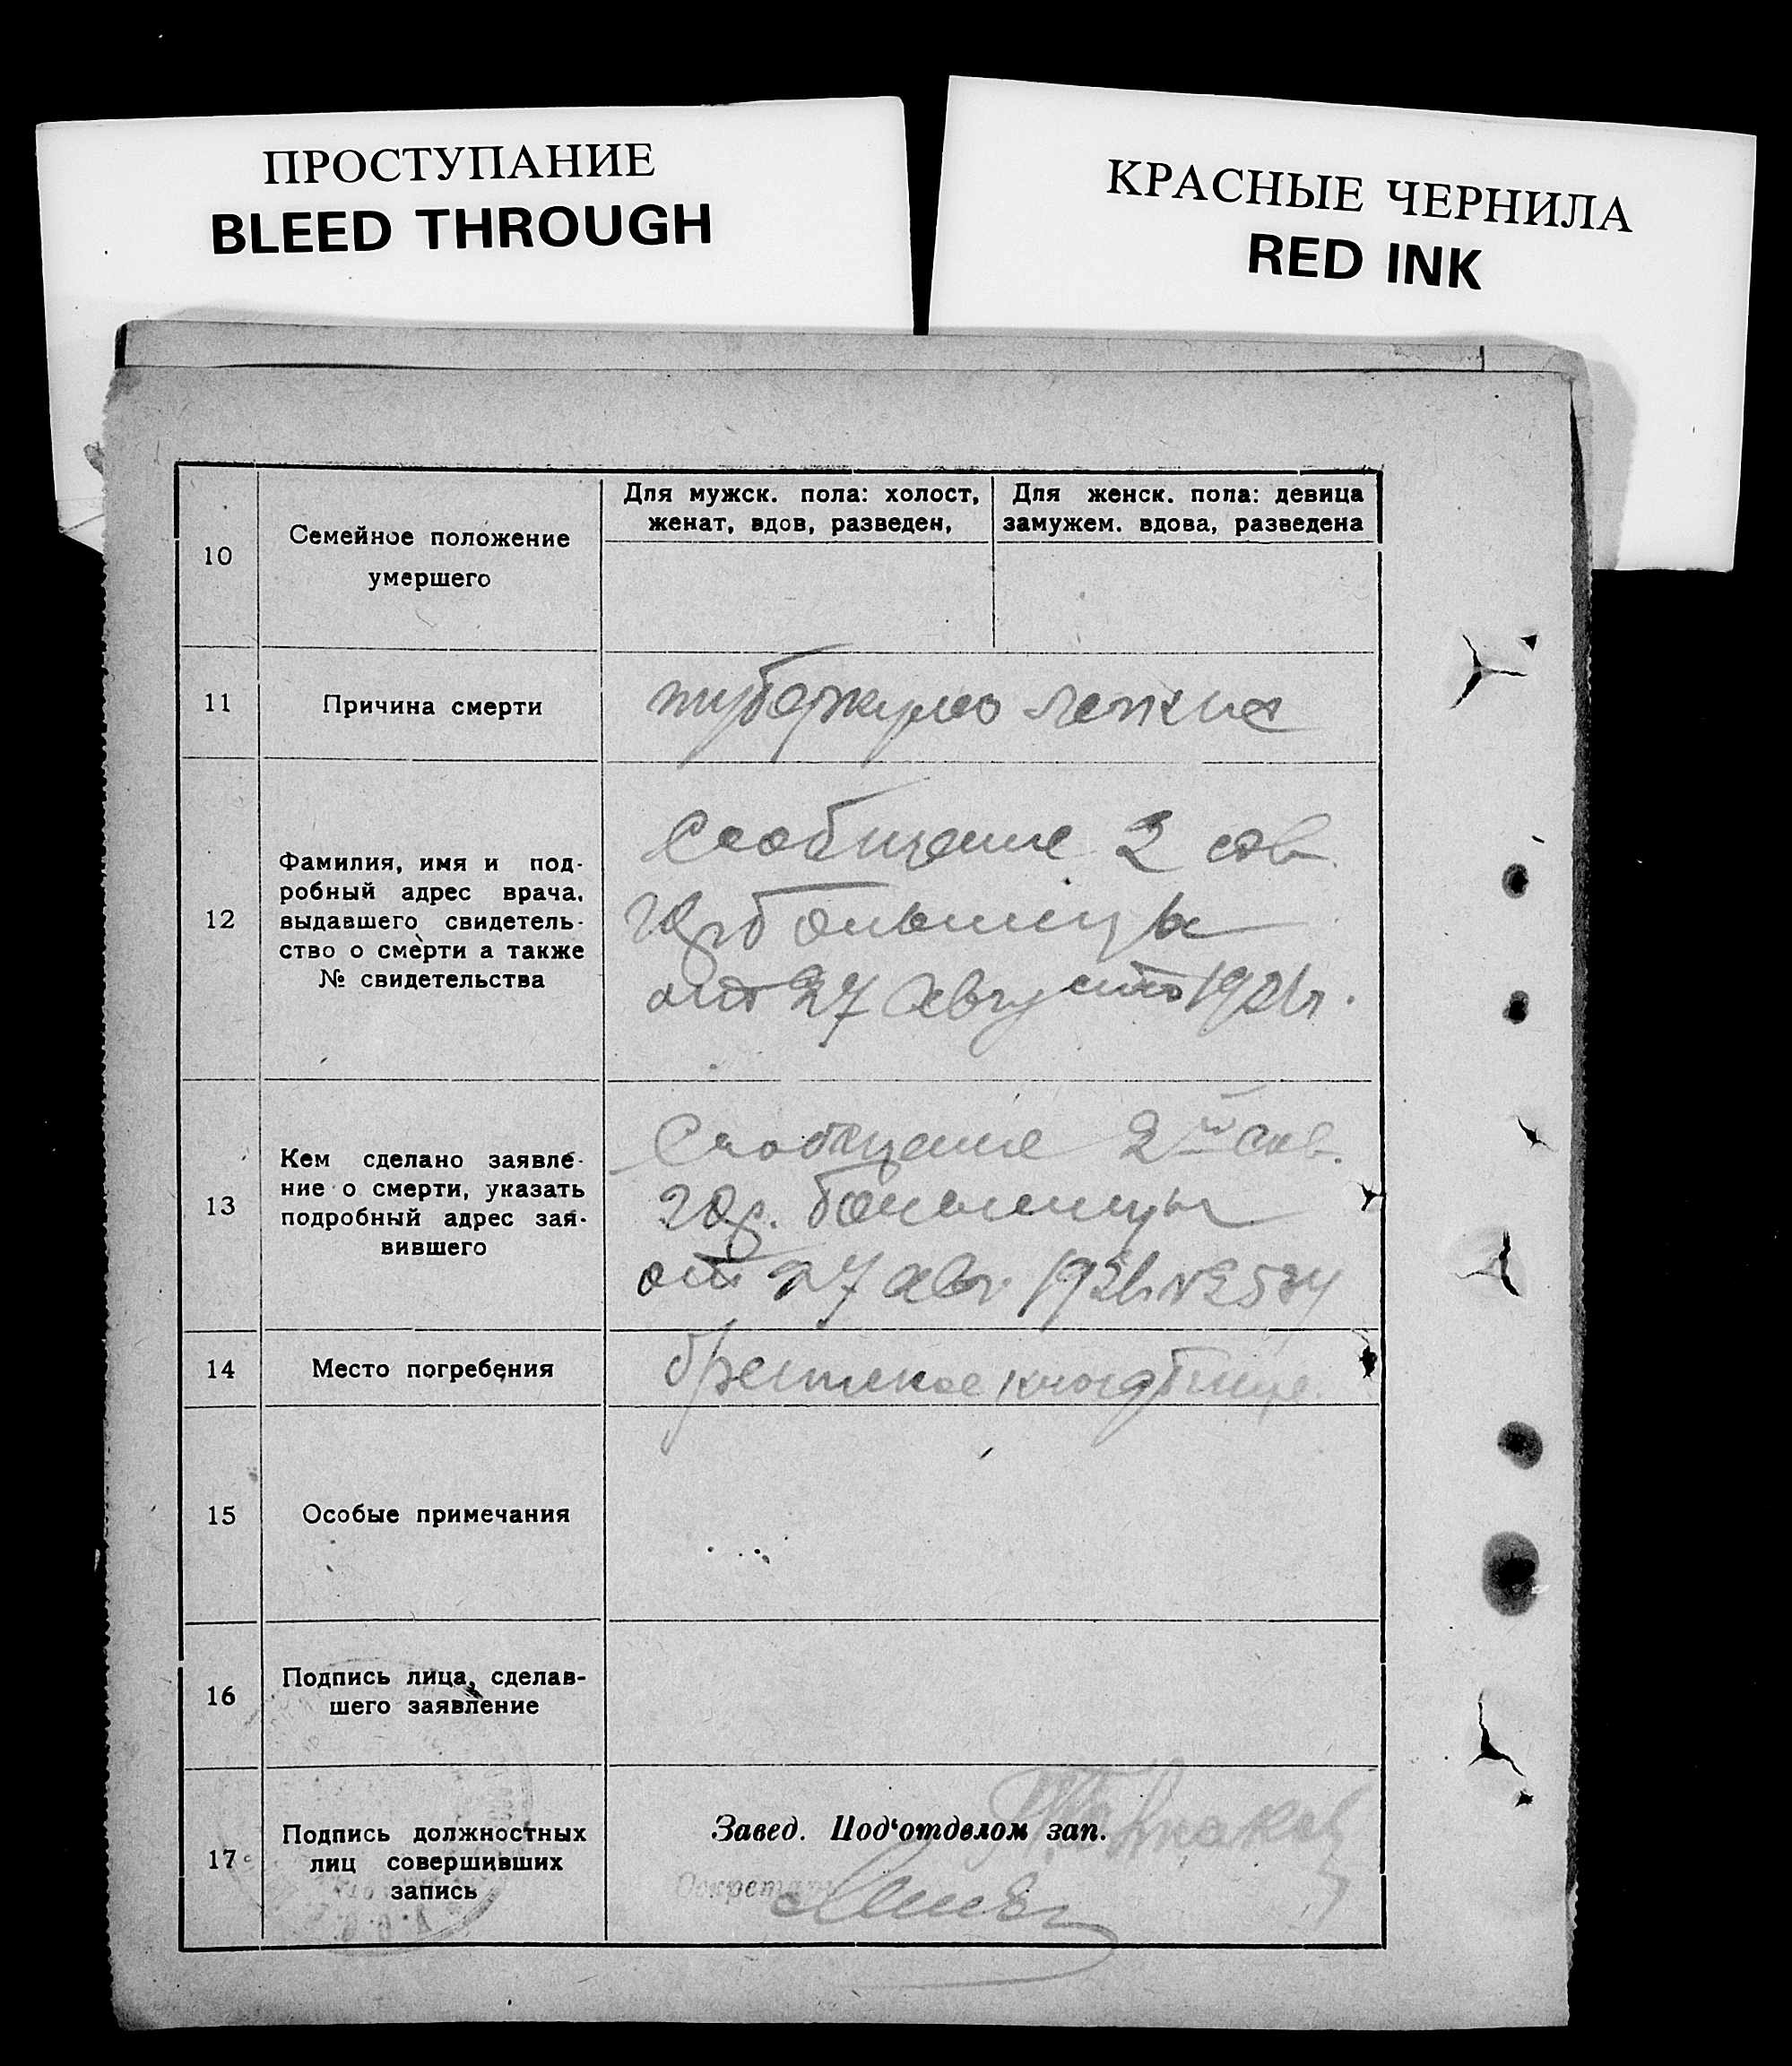 ПРОСТУПАНИЕ
BLEED THROUGH
КРАСНЫЕ ЧЕРНИЛА
RED INK
10
Семейное положение
умершего
Для мужск. пола: холост,
женат, вдов, разведен,
Для женск. пола: девица
замужем. вдова, разведена
11
Причина смерти
туберкулез легких
12
Фамилия, имя и под-
робный адрес врача,
выдавшего свидетель-
ство о смерти а также
№ свидетельства
Сообщение 2 сов.
гор больницы
от 27 августа 192 г.
13
Кем сделано заявле-
ние о смерти, указать
подробный адрес зая-
вившего
Сообщение 2й сов.
гор. больницы
от 27 авг.
14
Место погребения
братское кладбище.
15
Особые примечания
16
Подпись лица, сделав-
шего заявление
17
Подпись должностных
лиц совершивших
запись
Завед. Под‘отделом зап.
Секретарь